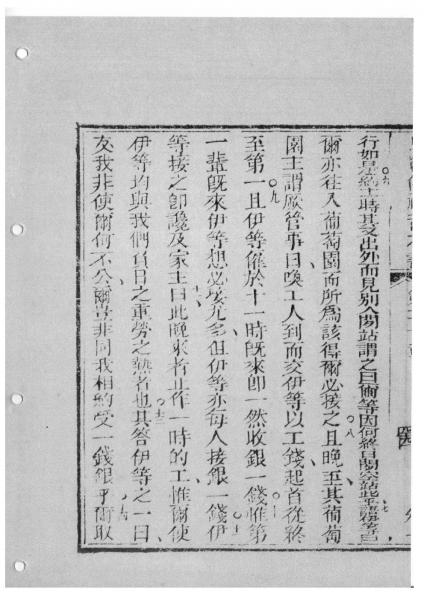 行如是約十一時其又出外而見別人閑站謂之曰爾等因何終日閑空站此乎
七
爾亦往入葡萄園而所為該得爾必接之且晚至其葡萄
八
園主謂厥管事曰喚工人到而交伊等以工錢起首從終
九
至第一且伊等僱於十一時既來即一然收銀一錢惟第
十
一輩既來伊等想必接尤多但伊等亦每人接銀一錢伊
十一
等接之即讒及家主曰此晚來者止作一時的工惟爾使
十二
伊等均與我們負日之重勞之熱者也其答伊等之一曰
十三
友我非使爾何不公爾豈非同我相約受一錢銀乎爾取
十四